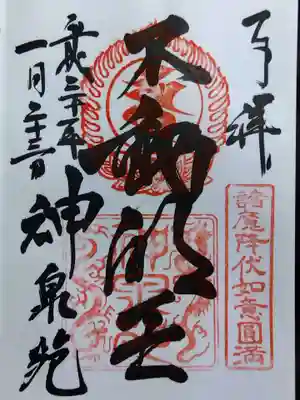 奉拝
諸魔降伏如意圓満
不動明王
平成三十一年
一月二十三日
神泉苑